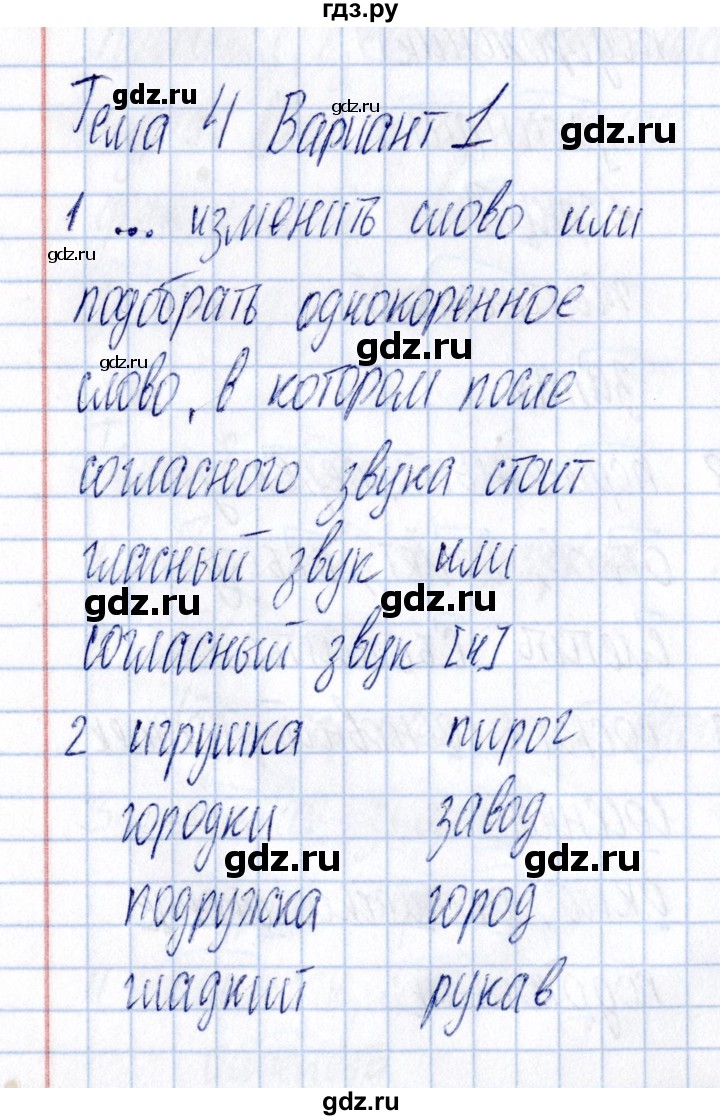 гдз.ру
Тема 4 Вариант 1
1 ... изменить слово или
подобрать однокоренное
слово, в котором после
согласного звука стоит
гласный звук или
согласный звук [н]
2 игрушка пирог
городки завод
подружка город
гладкий рукав
gdz.ru
gdz.ru
gdz.ru
gdz.ru
gdz.ru
gdz.ru
gdz.ru
gdz.ru
gdz.ru
gdz.ru
gdz.ru